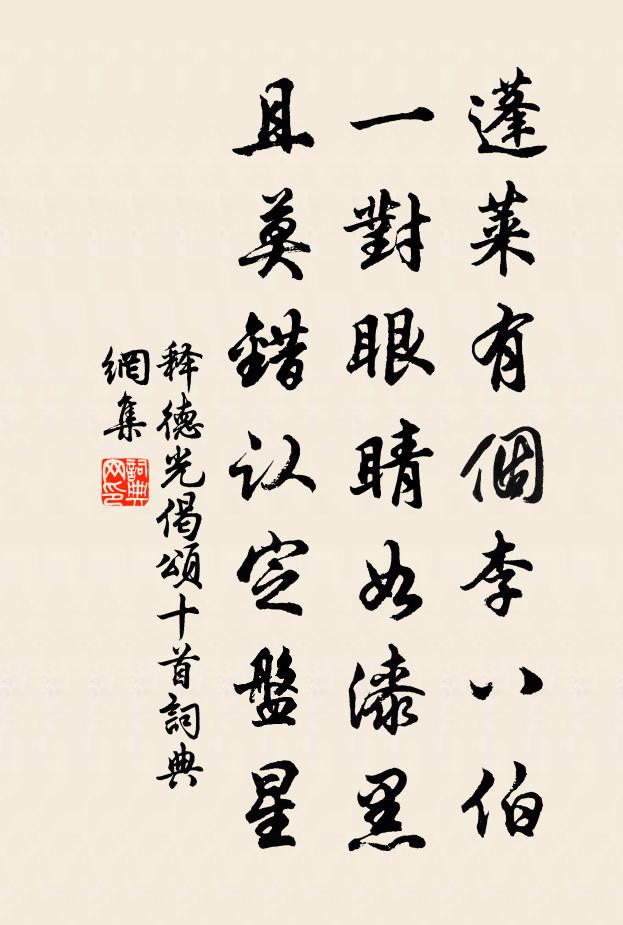 蓬萊有個李八伯
一對眼睛如漆黑
且莫錯认定盤星
释德光偈頌十首詞典
網集
詞典网印